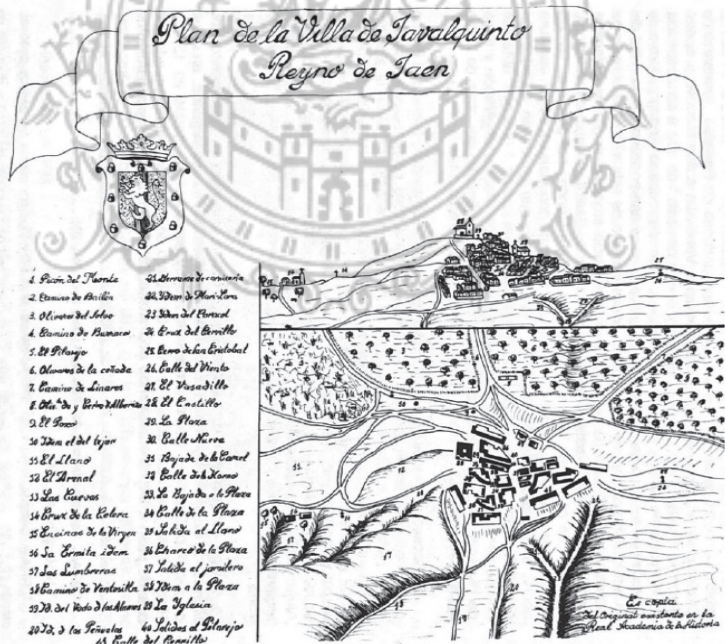 Plan de la Villa de Javalquinto
Reyno de Jaen
1. Picon del Monte
2. Camino de Bailén
3. Olivares del Sotno
4. Camino de Barraco
5. El Pilarejo
6. Olivares de la cañada
7. Camino de Linares
8. y Cerro
9. El Pozo
10 Idem el del tejar
11 El Llano
12 El Arenal
13 Las Cuevas
14 Cruz de la Colera
15 Encinas de la Virgen
16 La Ermita idem
17 Las Lumbreras
18 Camino de Ventosilla
19. Id. del Vado
20 Id. d las Peñuelas
21. de
22. Idem de Mari-Lara
23 Idem del
24 Cruz del Cerrillo
25. Cerro de San Cristobal
26. Calle del Viento
27. El Vasadillo
28 El Castillo
29. La Plaza
30. Calle Nueva
31 Bajada de la Carcel
32 Calle del Horno
33. La Bajada a la Plaza
34 Calle de la Plaza
35 Salida al Llano
36 Charco de la Plaza
37 Salida al
38 Idem a la Plaza
39 La Iglesia
40 Salida al Pilarejo
41 Calle del Cerrillo
Es copia
del Original existente en la
Real Academia de la Historia